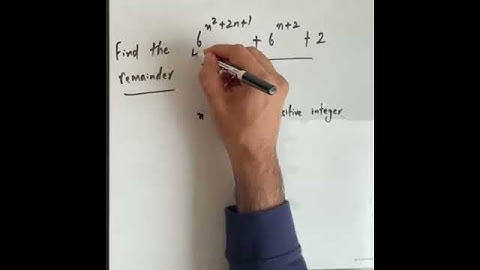 Find the
remainder
6^{n^2+2n+1} + 6^{n+2} + 2
n
integer